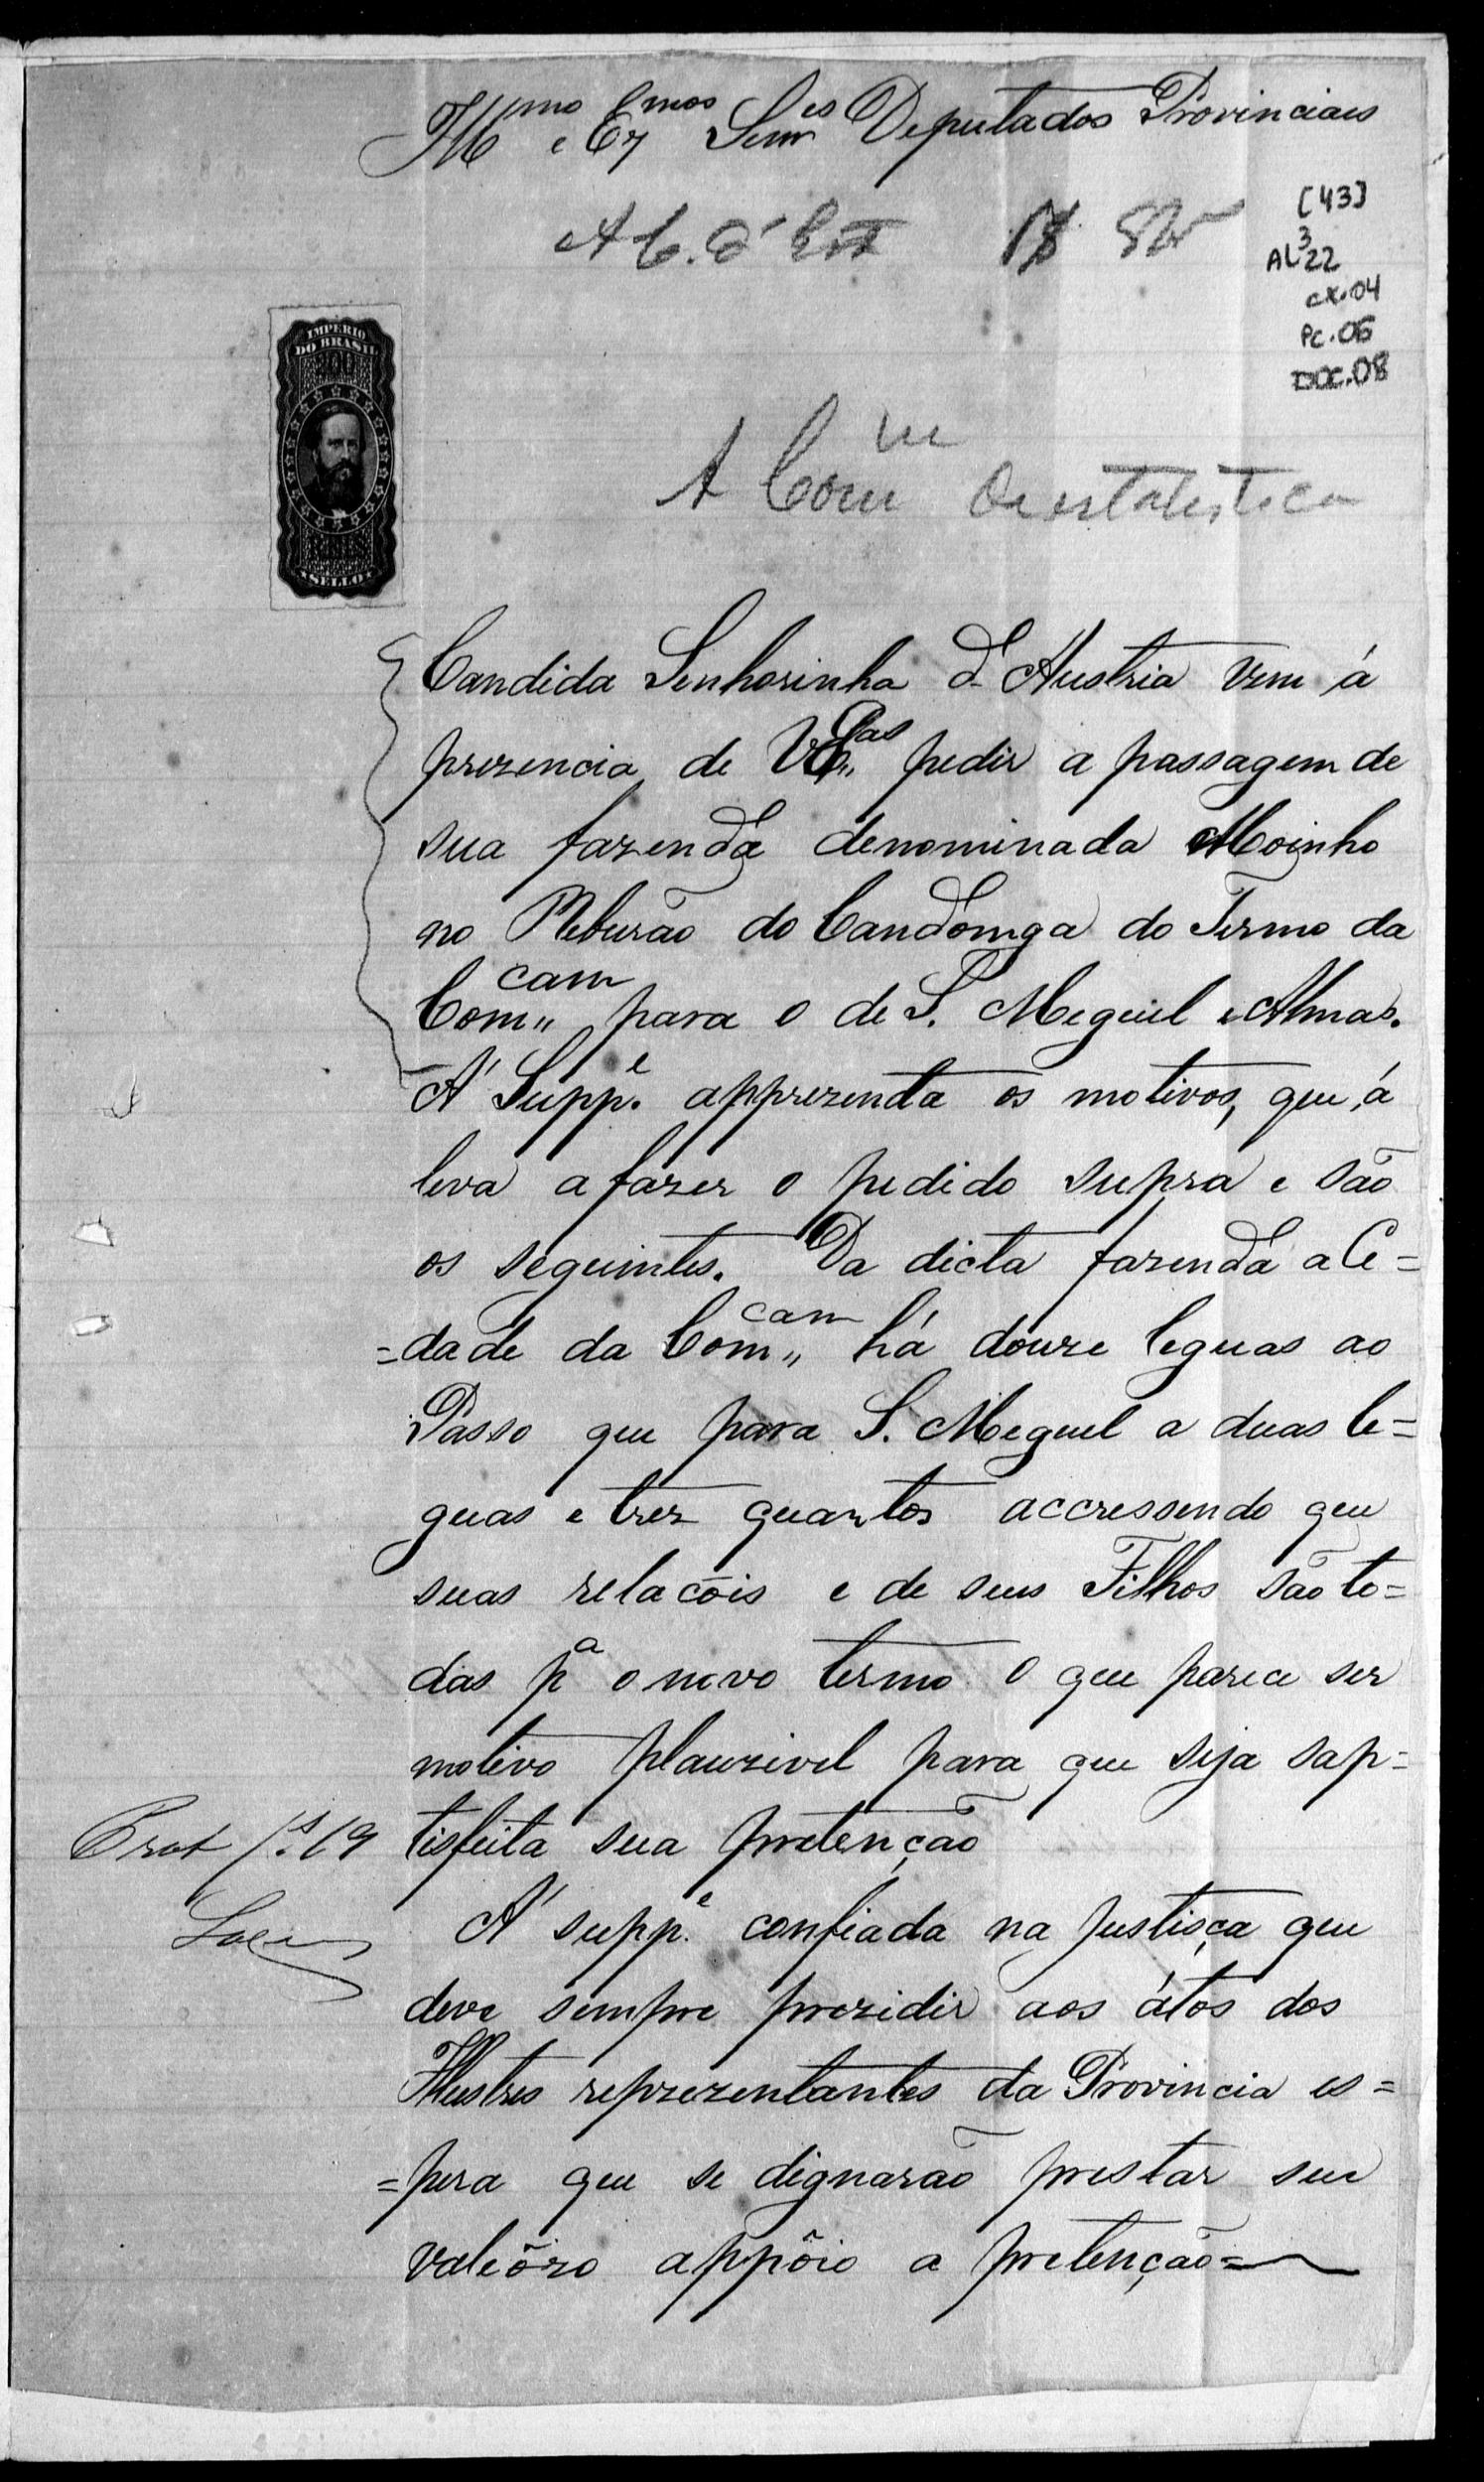 Illmos e Exmos Senres Deputados Provinciaes
A C. d'Est
[43]
AL 3 22
cx.04
Pc.06
DOC.08
IMPERIO
DO BRASIL
200
REIS
SELLO
A Comm de estatistica
Candida Senhorinha d'Austria vem á
prezencia de VExcas pedir a passagem de
sua fazenda denominada Moinho
no Reburão do Candonga do Termo da
Comcam para o de S. Meguel e Almas.
A' Suppe apprezenta os motivos, que á
leva a fazer o pedido supra e são
os seguintes. Da dicta fazenda a Ce=
=dade da Comcam há douze leguas ao
Passo que para S. Meguel a duas le=
guas e trez quartos accressendo que
suas relacois e de seus Filhos são to=
das pa o novo termo o que parece ser
motivo plauzivel para que seja sap=
tisfeita sua pretenção
Prot fs. 19
A' suppe confiada na Justisça que
deve sempre prezidir aos átos dos
Illustres reprezentantes da Provincia es=
=pera que se dignarão prestar seu
valeôzo appôio a pretenção=